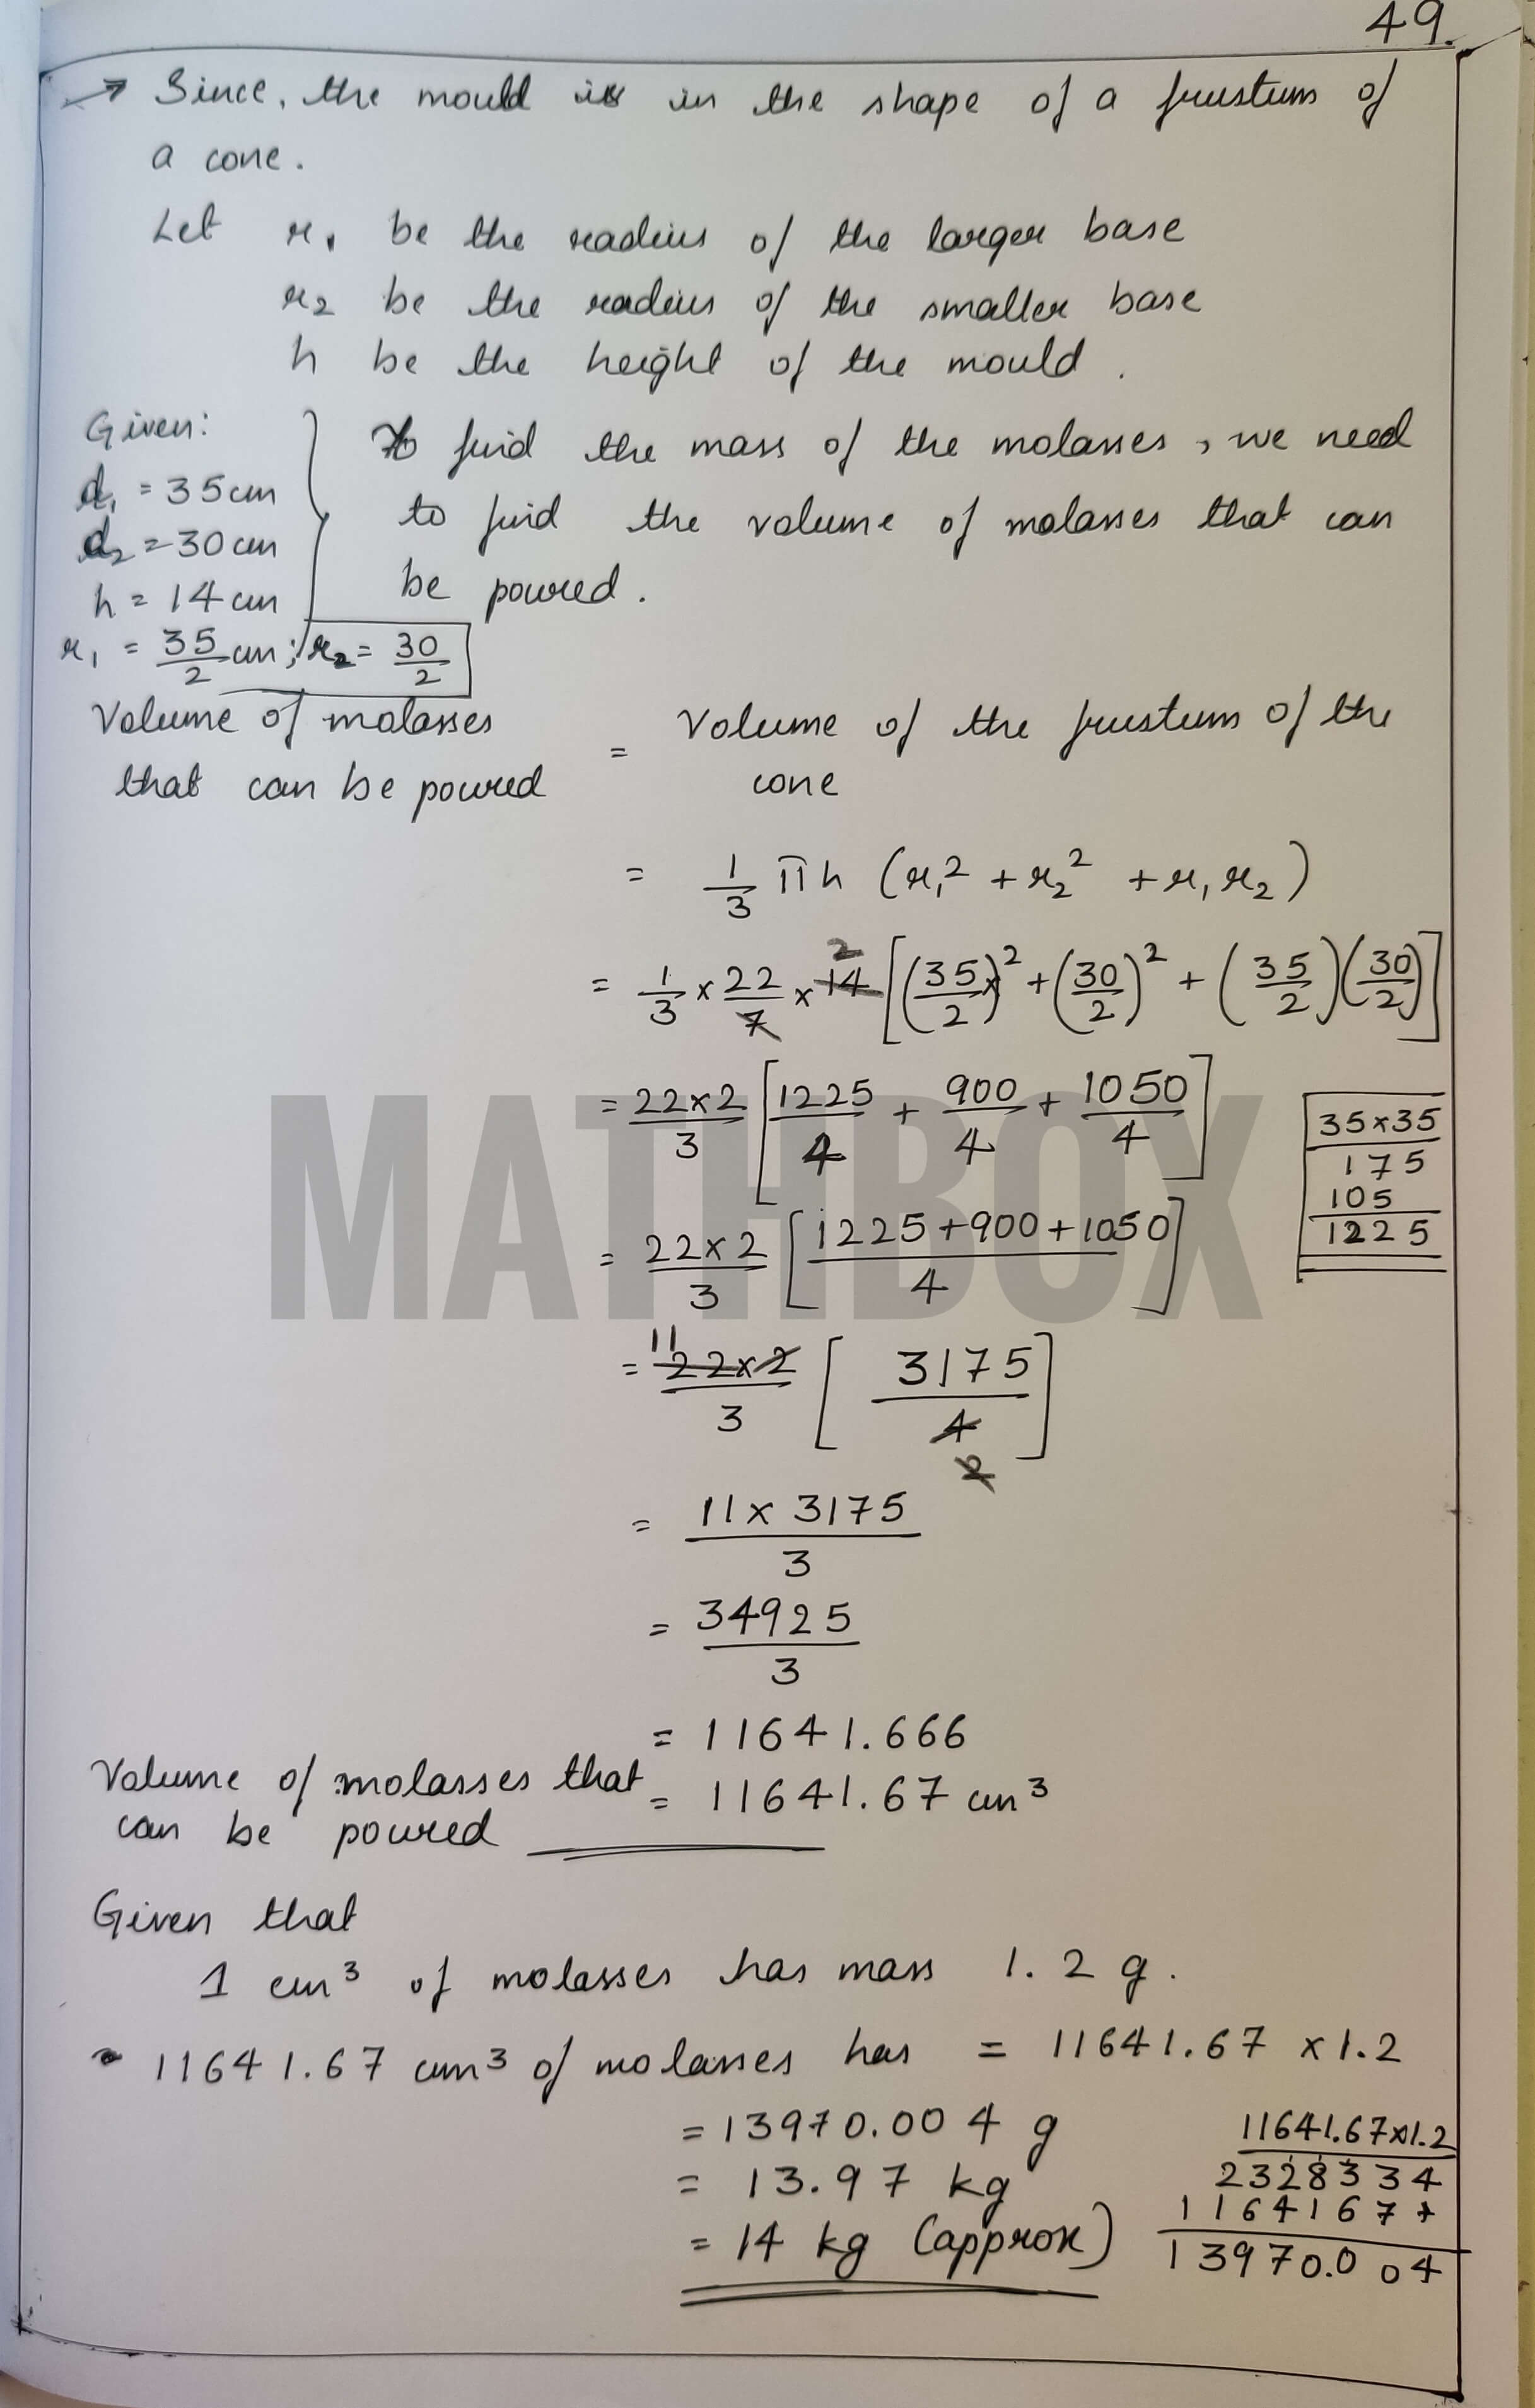 49.
→ Since, the mould is in the shape of a frustum of
a cone.
Let r₁ be the radius of the larger base
r₂ be the radius of the smaller base
h be the height of the mould.
Given:
d₁ = 35 cm
d₂ = 30 cm
h = 14 cm
r₁ = 35/2 cm; r₂ = 30/2
To find the mass of the molasses, we need
to find the volume of molasses that can
be poured.
Volume of molasses
that can be poured
= Volume of the frustum of the
cone
= 1/3 πh (r₁² + r₂² + r₁ r₂)
= 1/3 × 22/7 × 14 2 [(35/2)² + (30/2)² + (35/2)(30/2)]
= 22×2/3 [1225/4 + 900/4 + 1050/4]
35×35
175
105
1225
= 22×2/3 [1225+900+1050/4]
= 11 22×2/3 [3175/4]
= 11 × 3175/3
= 34925/3
= 11641.666
Volume of molasses that
can be poured
= 11641.67 cm³
Given that
1 cm³ of molasses has mass 1.2 g.
11641.67 cm³ of molasses has = 11641.67 × 1.2
= 13970.004 g
= 13.97 kg
= 14 kg (approx)
11641.67×1.2
2328334
1164167+
13970.004
MATHBOX